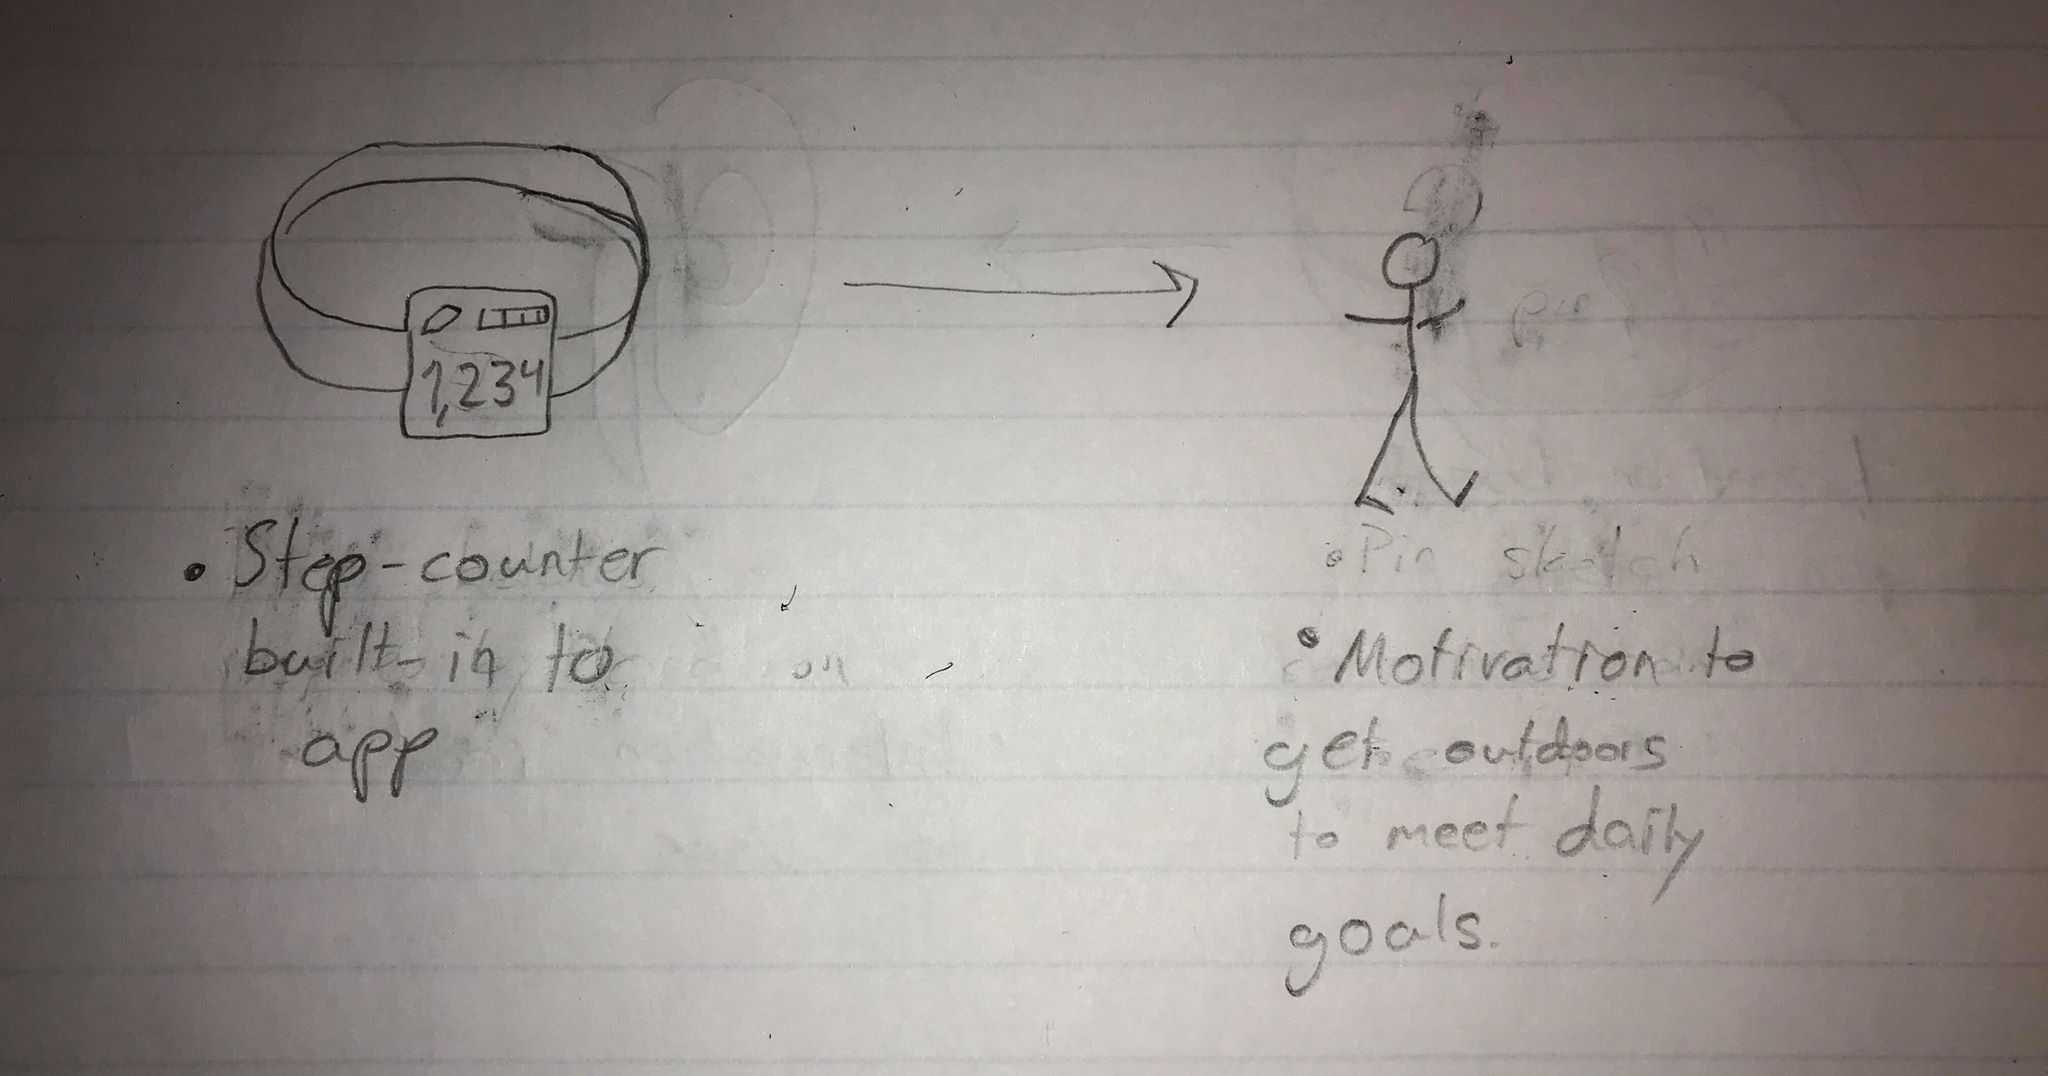 1,234
• Step-counter
built-in to
app
• Pin sketch
• Motivation to
get outdoors
to meet daily
goals.